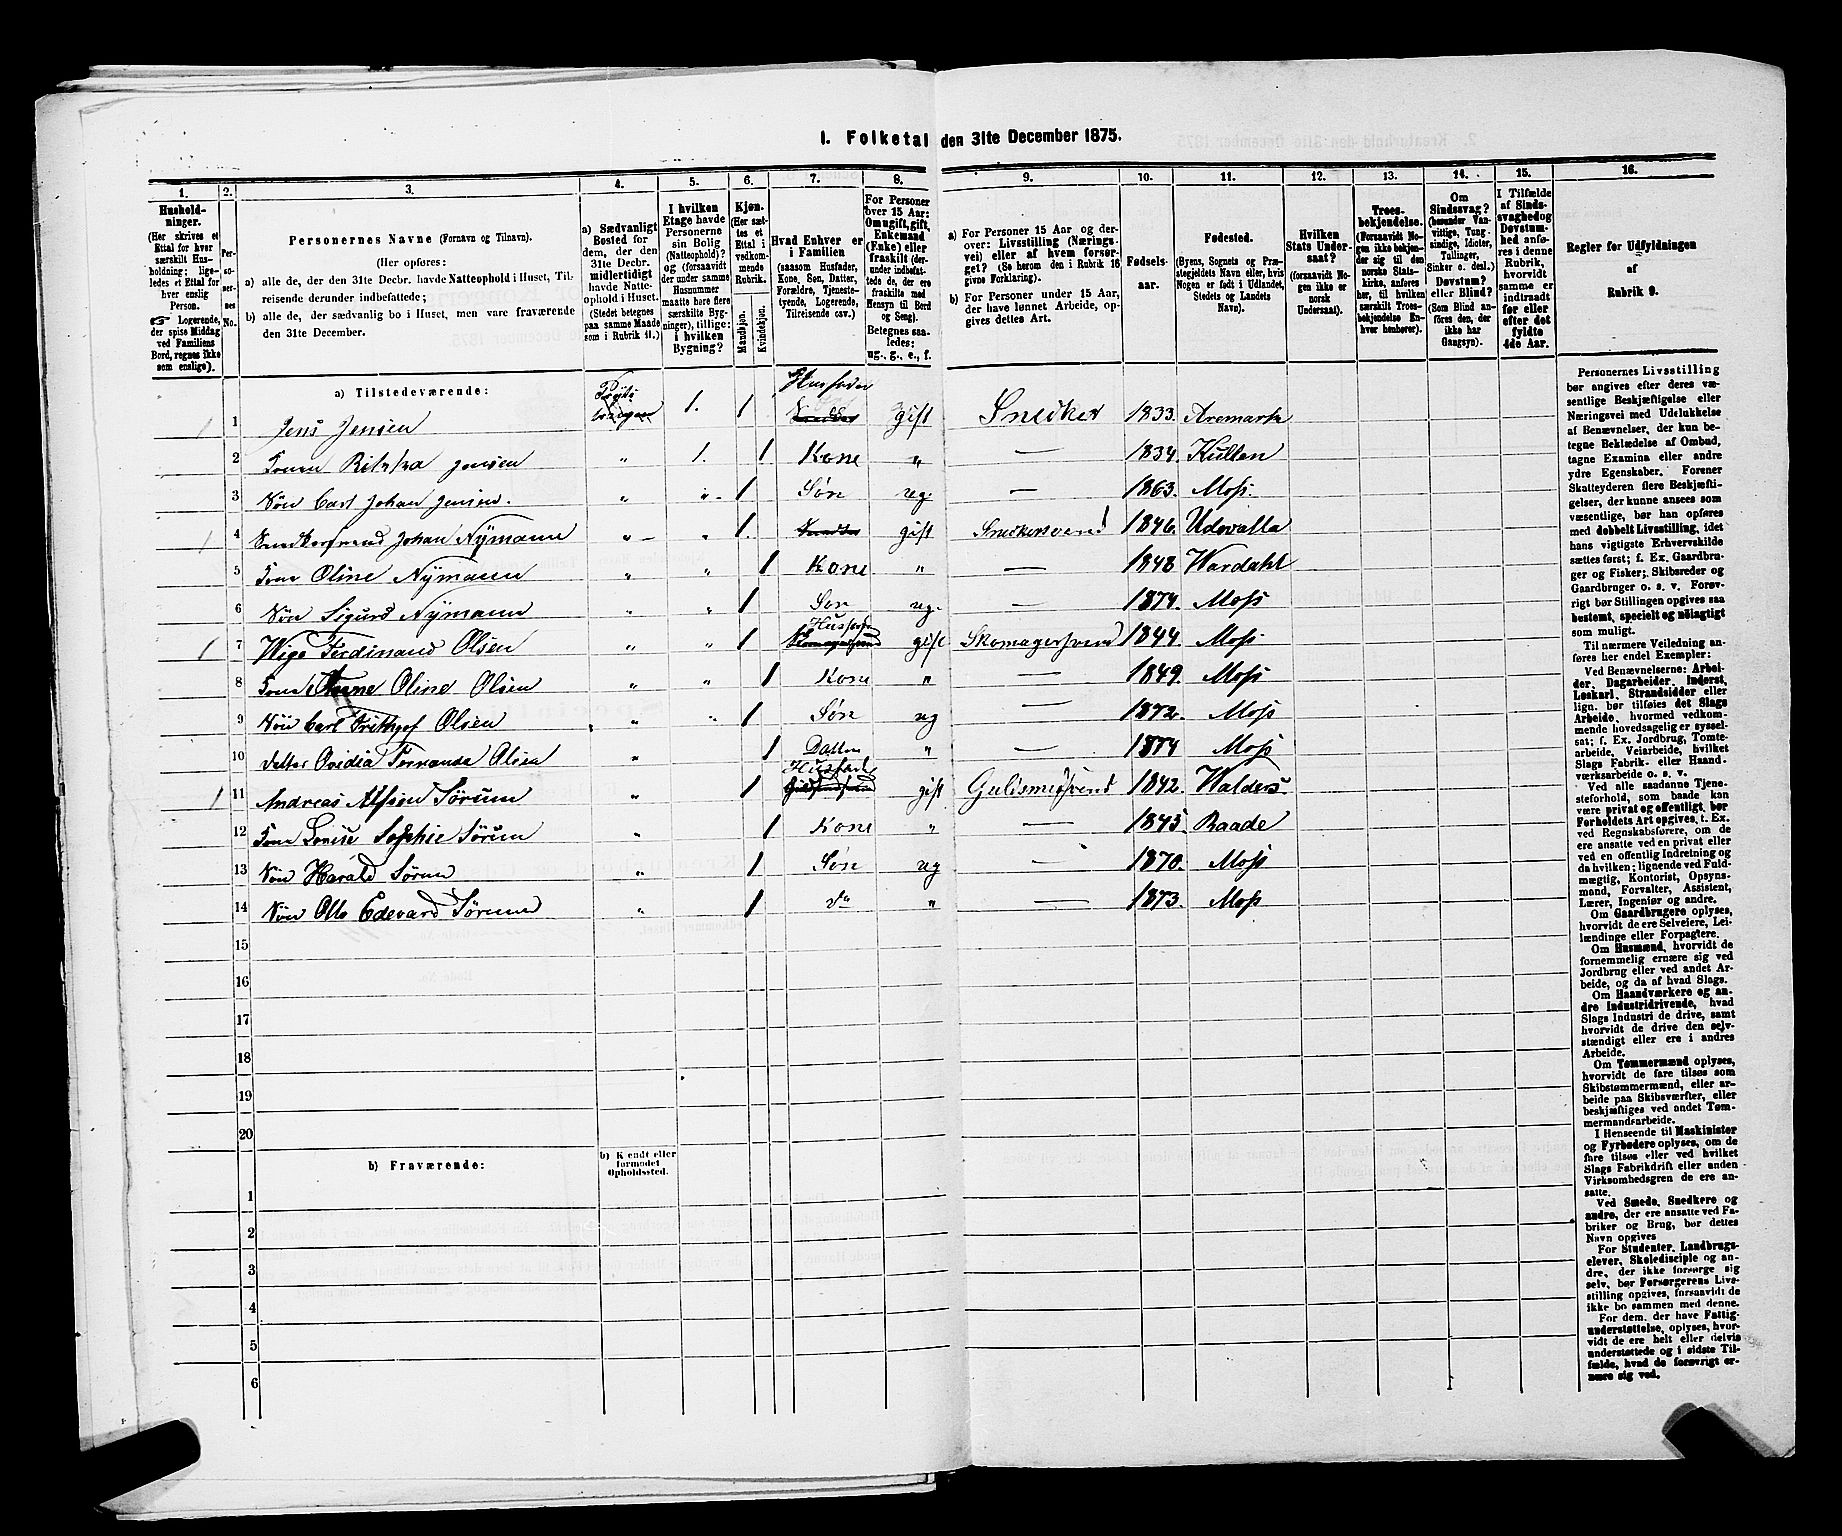 1. Folketal den 31te December 1875.
1.
2.
3.
4.
5.
6.
7.
8.
9.
10.
11.
12.
13.
14.
15.
16.
Hushold-
ninger.
(Her skrives et
Ettal for hver
særskilt Hus-
holdning; lige-
ledes et Ettal
for hver enslig
Person.
☞ Logerende,
der spise Middag
ved Familiens
Bord, regnes ikke
som enslige).
Per-
so-
ner-
nes
No.
Personernes Navne (Fornavn og Tilnavn).
(Her opføres:
a) alle de, der den 31te Decbr. havde Natteophold i Huset, Til-
reisende derunder indbefattede;
b) alle de, der sædvanlig bo i Huset, men vare fraværende
den 31te December.
a) Sædvanligt
Bosted for
dem, der den
31te Decbr.
midlertidigt
havde Natte-
ophold i Huset.
(Stedet betegnes
paa samme Maade
som i Rubrik 11.)
I hvilken
Etage havde
Personerne
sin Bolig
(Natteophold)?
og (forsaavidt
der under samme
Husnummer
maatte høre flere
særskilte Byg-
ninger), tillige:
i hvilken
Bygning?
Kjøn.
(Her sæt-
tes et
Ettal i
vedkom-
mende
Rubrik.
Mandkjøn.
Kvindekjøn.
Hvad Enhver er
i Familien
(saasom Husfader,
Kone, Søn, Datter,
Forældre, Tjeneste-
tyende, Logerende,
Tilreisende cav.)
For Personer
over 15 Aar:
Om ugift, gift,
Enkemand
(Enke) eller
fraskilt (der-
under indbefat-
tede de, der ere
fraskilte med
Hensyn til Bord
og Seng).
Betegnes saa-
ledes:
ug., g., e., f.
a) For Personer 15 Aar og der-
over: Livsstilling (Nærings-
vei) eller af hvem forsør-
get? (Se herom den i Rubrik 16
givne Forklaring).
b) For Personer under 15 Aar,
der have lønnet Arbeide, op-
gives dettes Art.
Fødsels-
aar.
Fødested.
(Byens, Sognets og Præ-
stegjeldets Navn eller, hvis
Nogen er født i Udlandet,
Stedets og Landets
Navn).
Hvilken
Stats Under-
saat?
(forsaavidt No-
gen ikke er
norsk
Undersaat).
Troes-
bekjendelse.
(Forsaavidt No-
gen ikke bekjen-
der sig til den
norske Stats-
kirke, anføres
her, til hvilken
særskilt Troes-
bekjendelse En-
hver henhører).
Om
Sindssvag?
(herunder Van-
vittige, Tung-
sindige, Idioter,
Tullinger,
Sinker o. desl.)
Døvstum?
eller Blind?
(Som Blind an-
føres den, der
ikke har
Gangsyn).
I Tilfælde
af Sinds-
svaghed og
Døvstum-
hed anfø-
res i denne
Rubrik,
hvorvidt
samme er
indtraadt
før eller
efter det
fyldte
4de Aar.
Regler for Udfyldningen
af
Rubrik 9.
a) Tilstedeværende:
1 1 Jens Jensen 1. 1 Husfader gift Snedker 1833. Aremark
2 „ 1. 1 Kone „ — 1834. Kullen
3 Søn Carl Johan Jensen. „ „ 1 Søn ug. — 1863. Moss
1 4 Johan Nÿmann „ „ 1. gift Snedkersvend 1846. Udevalla
5 Oline Nÿmann „ „ 1 Kone „ — 1848 Wardahl
6 Søn Sigurd Nÿmann „ „ 1 Søn ug. — 1874. Moss
1 7 Wigo Ferdinand Olsen „ „ 1 Husfader gift Skomagersvend 1844. Moss
8 Oline Olsen „ „ 1 Kone „ — 1849. Moss
9 Søn Carl Frithjof Olsen „ „ 1 Søn ug — 1872. Moss
10 Datter Ovidia Olsen „ 1 Datter „ — 1874 Moss
1 11 Andreas Sørum „ 1 Husfader gift Guldsmedsvend 1842. Walders
12 Kone Louise Sophie Sørum „ 1 Kone „ — 1845 Raade
13 Søn Harald Sørum „ 1 Søn ug — 1870. Moss
14 Søn Otto Edevard Sørum „ 1 do „ — 1873. Moss
15
16
17
18
19
20
b) Fraværende:
b) Kendt eller
formodet
Opholdssted.
1
2
3
4
5
6
Personernes Livsstilling
bør angives efter deres væ-
sentlige Beskjæftigelse eller
Næringsvei med Udelukkelse
af Benævnelser, der kun be-
tegne Beklædelse af Ombud,
tagne Examina eller andre
ydre Egenskaber. Forener
Skatteyderen flere Beskjæfti-
gelser, der kunne ansees som
væsentlige, bør han opføres
med dobbelt Livsstilling, idet
hans vigtigste Erhvervskilde
sættes først; f. Ex. Gaardbru-
ger og Fisker; Skibsreder og
Gaardbruger o. s. v. Forøv-
rigt bør Stillingen opgives saa
bestemt, specielt og nøiagtigt
som muligt.
Til nærmere Veiledning an-
føres her endel Exempler:
Ved Benævnelserne: Arbei-
der, Dagarbeider, Inderst,
Løskarl, Strandsidder eller
lign. bør tilføies det Slags
Arbeide, hvormed vedkom-
mende hovedsagelig er syssel-
sat; f. Ex. Jordbrug, Tomte-
arbeide, Veiarbeide, hvilket
Slags Fabrik- eller Haand-
værksarbeide o. s. v.
Ved alle saadanne Tjene-
steforhold, som baade kan
være privat og offentligt, bør
Forholdets Art opgives, t. Ex.
ved Regnskabsførere, om de
ere ansatte ved en privat eller
ved en offentlig Indretning og
da hvilken; lignende ved Fuld-
mægtig, Kontorist, Opsyns-
mand, Forvalter, Assistent,
Lærer, Ingeniør og andre.
Om Gaardbrugere oplyses,
hvorvidt de ere Selveiere, Lei-
lændinge eller Forpagtere.
Om Husmænd, hvorvidt de
fornemmelig ernære sig ved
Jordbrug eller ved andet Ar-
beide, og da af hvad Slags.
Om Haandværkere og an-
dre Industridrivende, hvad
Slags Industri de drive, samt
hvorvidt de drive den selv-
stændigt eller ere i andres
Arbeide.
Om Tømmermænd oplyses,
hvorvidt de fare tilsøs som
Skibstømmermænd, eller ar-
beide paa Skibsværfter, eller
beskjæftiges ved andet Tøm-
mermandsarbeide.
I Henseende til Maskinister
og Fyrbødere oplyses, om de
fare tilsøs eller ved hvilket
Slags Fabrikdrift eller anden
Virksomhedsgren de ere an-
satte.
Ved Smede, Snedkere og
andre, der ere ansatte ved Fa-
briker og Brug, bør dettes
Navn opgives
For Studenter, Landbrugs-
elever, Skoledisciple og an-
dre, der ikke forsørge sig
selv, bør Forsørgerens Livs-
stilling opgives, forsaavidt de
ikke bo sammen med denne.
For dem, der have Fattig-
understøttelse, oplyses, hvor-
vidt de ere helt eller delvis
understøttede og i sidste Til-
fælde, hvad de forøvrigt er-
nære sig ved.